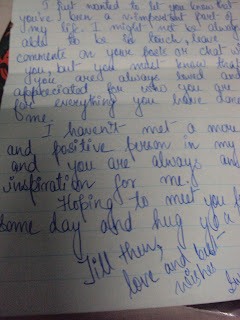 I just wanted to let you know that
you've been a v.important part of
my life. I might not be always
able to be in touch, leave a
comment on your posts or chat with
you, but you must know that
you are always loved and
appreciated for who you are
for everything you have done
me.
I haven't met a more
and positive person in my
and you are always an
inspiration for me.
Hoping to meet you
some day and hug you
Till then,
love and best
wishes